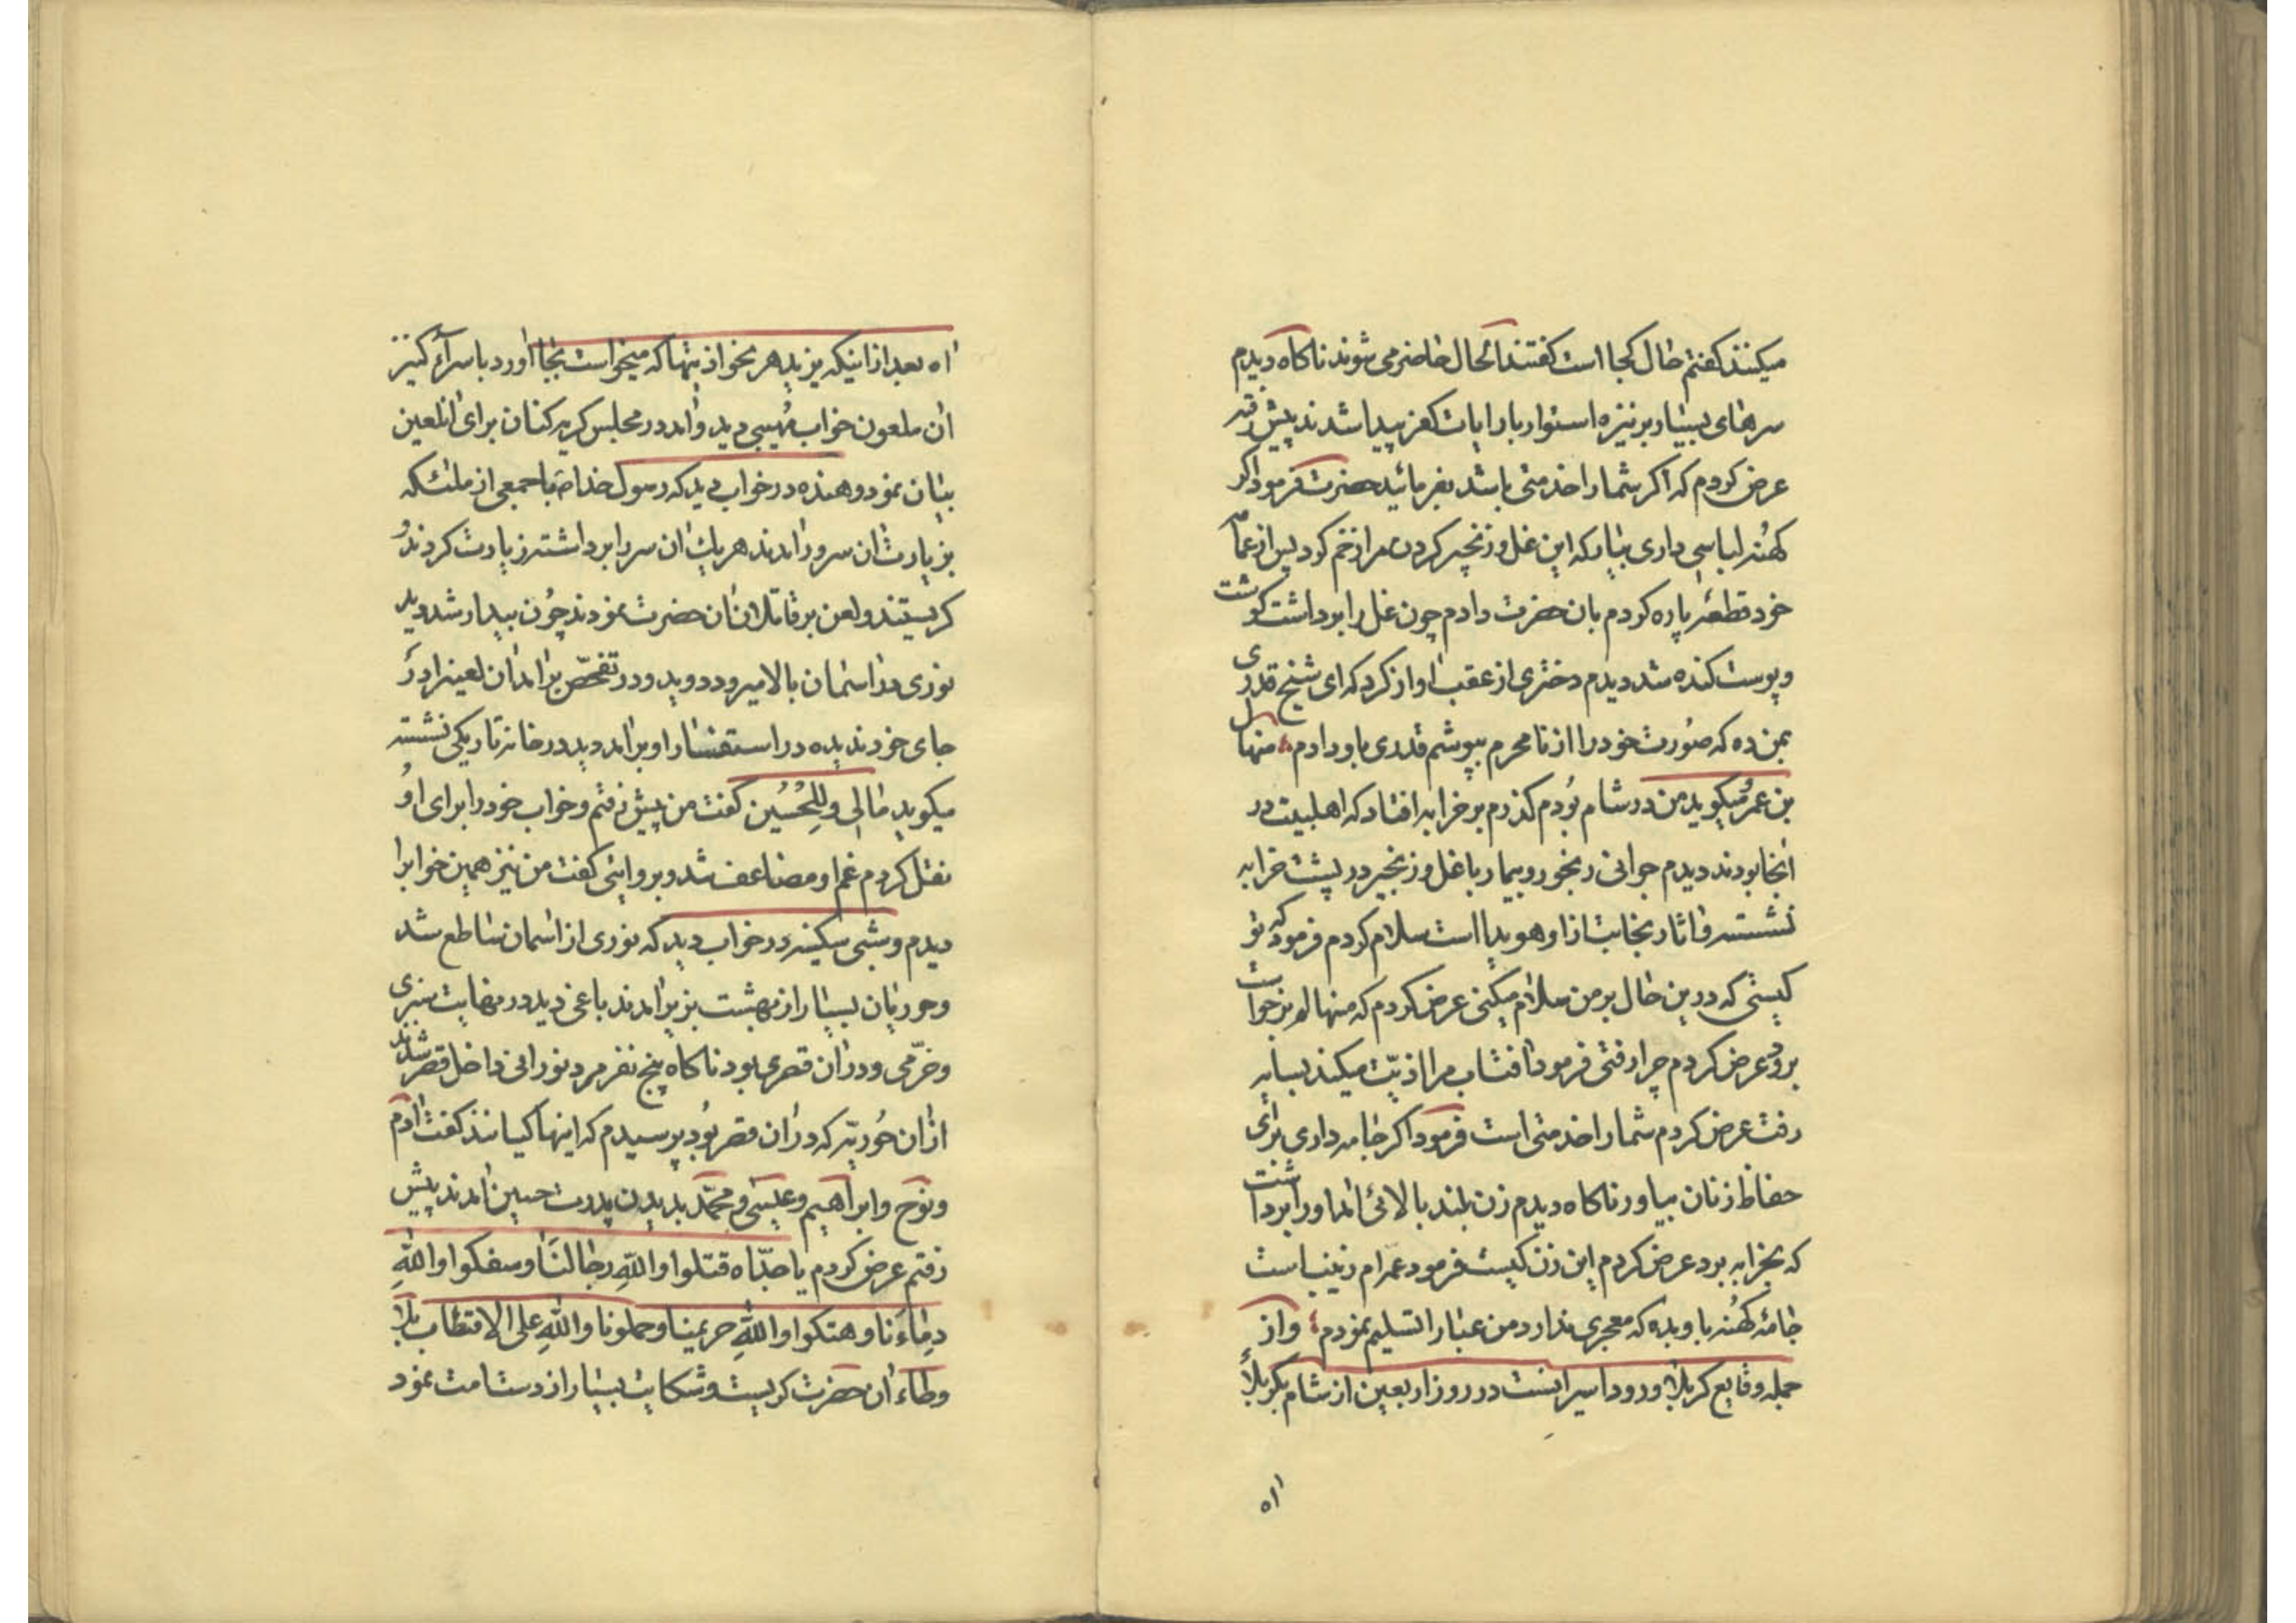 میکنند کفتم حال کجا است کفتند الحال حاضر می شوند ناکاه دیدم
سرهای بسیار بر نیزه استوار با رایات کفر پیدا شدند پیش رفته
عرض کردم که اکر شما را خدمتی باشد بفرمائید حضرت فرمود اکر
کهنه لباسی داری بیاور که این غل و زنجیر کردن مرا زخم کرد پس از عمامه
خود قطعه پاره کردم بان حضرت دادم چون غل را برداشت کوشت
و پوست کنده شد دیدم دختری از عقب اواز کرد که ای شیخ قدری
بمن ده که صورت خود را از نا محرم بپوشم قدری باو دادم منهال
بن عمر میکوید من در شام بودم کذرم بر خرابه افتاد که اهلبیت در
انجا بودند دیدم جوانی رنجور و بیمار با غل و زنجیر در پشت خرابه
نشسته و اثار نجابت از او هویدا است سلام کردم فرمود که تو
کیستی که درین حال بر من سلام میکنی عرض کردم که منهالم برخواست
برود عرض کردم چرا رفتی فرمود افتاب مرا اذیّت میکند بسایه
رفت عرض کردم شما را خدمتی است فرمود اکر جامه داری برای
حفاظ زنان بیاور ناکاه دیدم زن بلند بالائی امد او را برداشت
که بخرابه برد عرض کردم این زن کیست فرمود عمه ام زینب است
جامهٔ کهنه باو بده که معجری ندارد من عبا را تسلیم نمودم و از
جمله وقایع کربلا ورود اسیرانست در روز اربعین از شام بکربلا
اه
اه بعد از اینکه یزید هر نحو اذیتها که میخواست بجا اورد با سراء کنیز
ان ملعون خواب مهیبی دید و امد در مجلس کریه کنان برای انلعین
بیان نمود و هنده در خواب دید که رسول خدا ص با جمعی از ملئکه
بزیارت ان سرور امدند هر یك ان سر را برداشته زیارت کردند و
کریستند و لعن بر قاتلان ان حضرت نمودند چون بیدار شد دید
نوری از اسمان بالا میرود دوید و در تفحّص بر امد ان لعین را در
جای خود ندیده در استفسار او بر امد دید در خانه تاریکی نشسته
میکوید مالی و للحسین کفت من پیش رفتم و خواب خود را برای او
نقل کردم غم او مضاعف شد و بروایتی کفت من نیز همین خوابرا
دیدم و شبی سکینه در خواب دید که نوری از اسمان ساطع شد
و حوریان بسیار از بهشت بزیر امدند باغی دید در نهایت سبزی
و خرّمی و در ان قصری بود ناکاه پنج نفر مرد نورانی داخل قصر شدند
از ان حُوریّه که در ان قصر بود پرسیدم که اینها کیانند کفت ادم
و نوح و ابراهیم و عیسی و محمّد بدیدن پدرت حسین امدند پیش
رفتم عرض کردم یا جدّاه قتلوا والله رجالنا و سفکوا والله
دماءنا و هتکوا والله حریمنا و حملونا والله علی الاقتاب بلا
وطاء ان حضرت کریست و شکایت بسیار از دست امت نمود